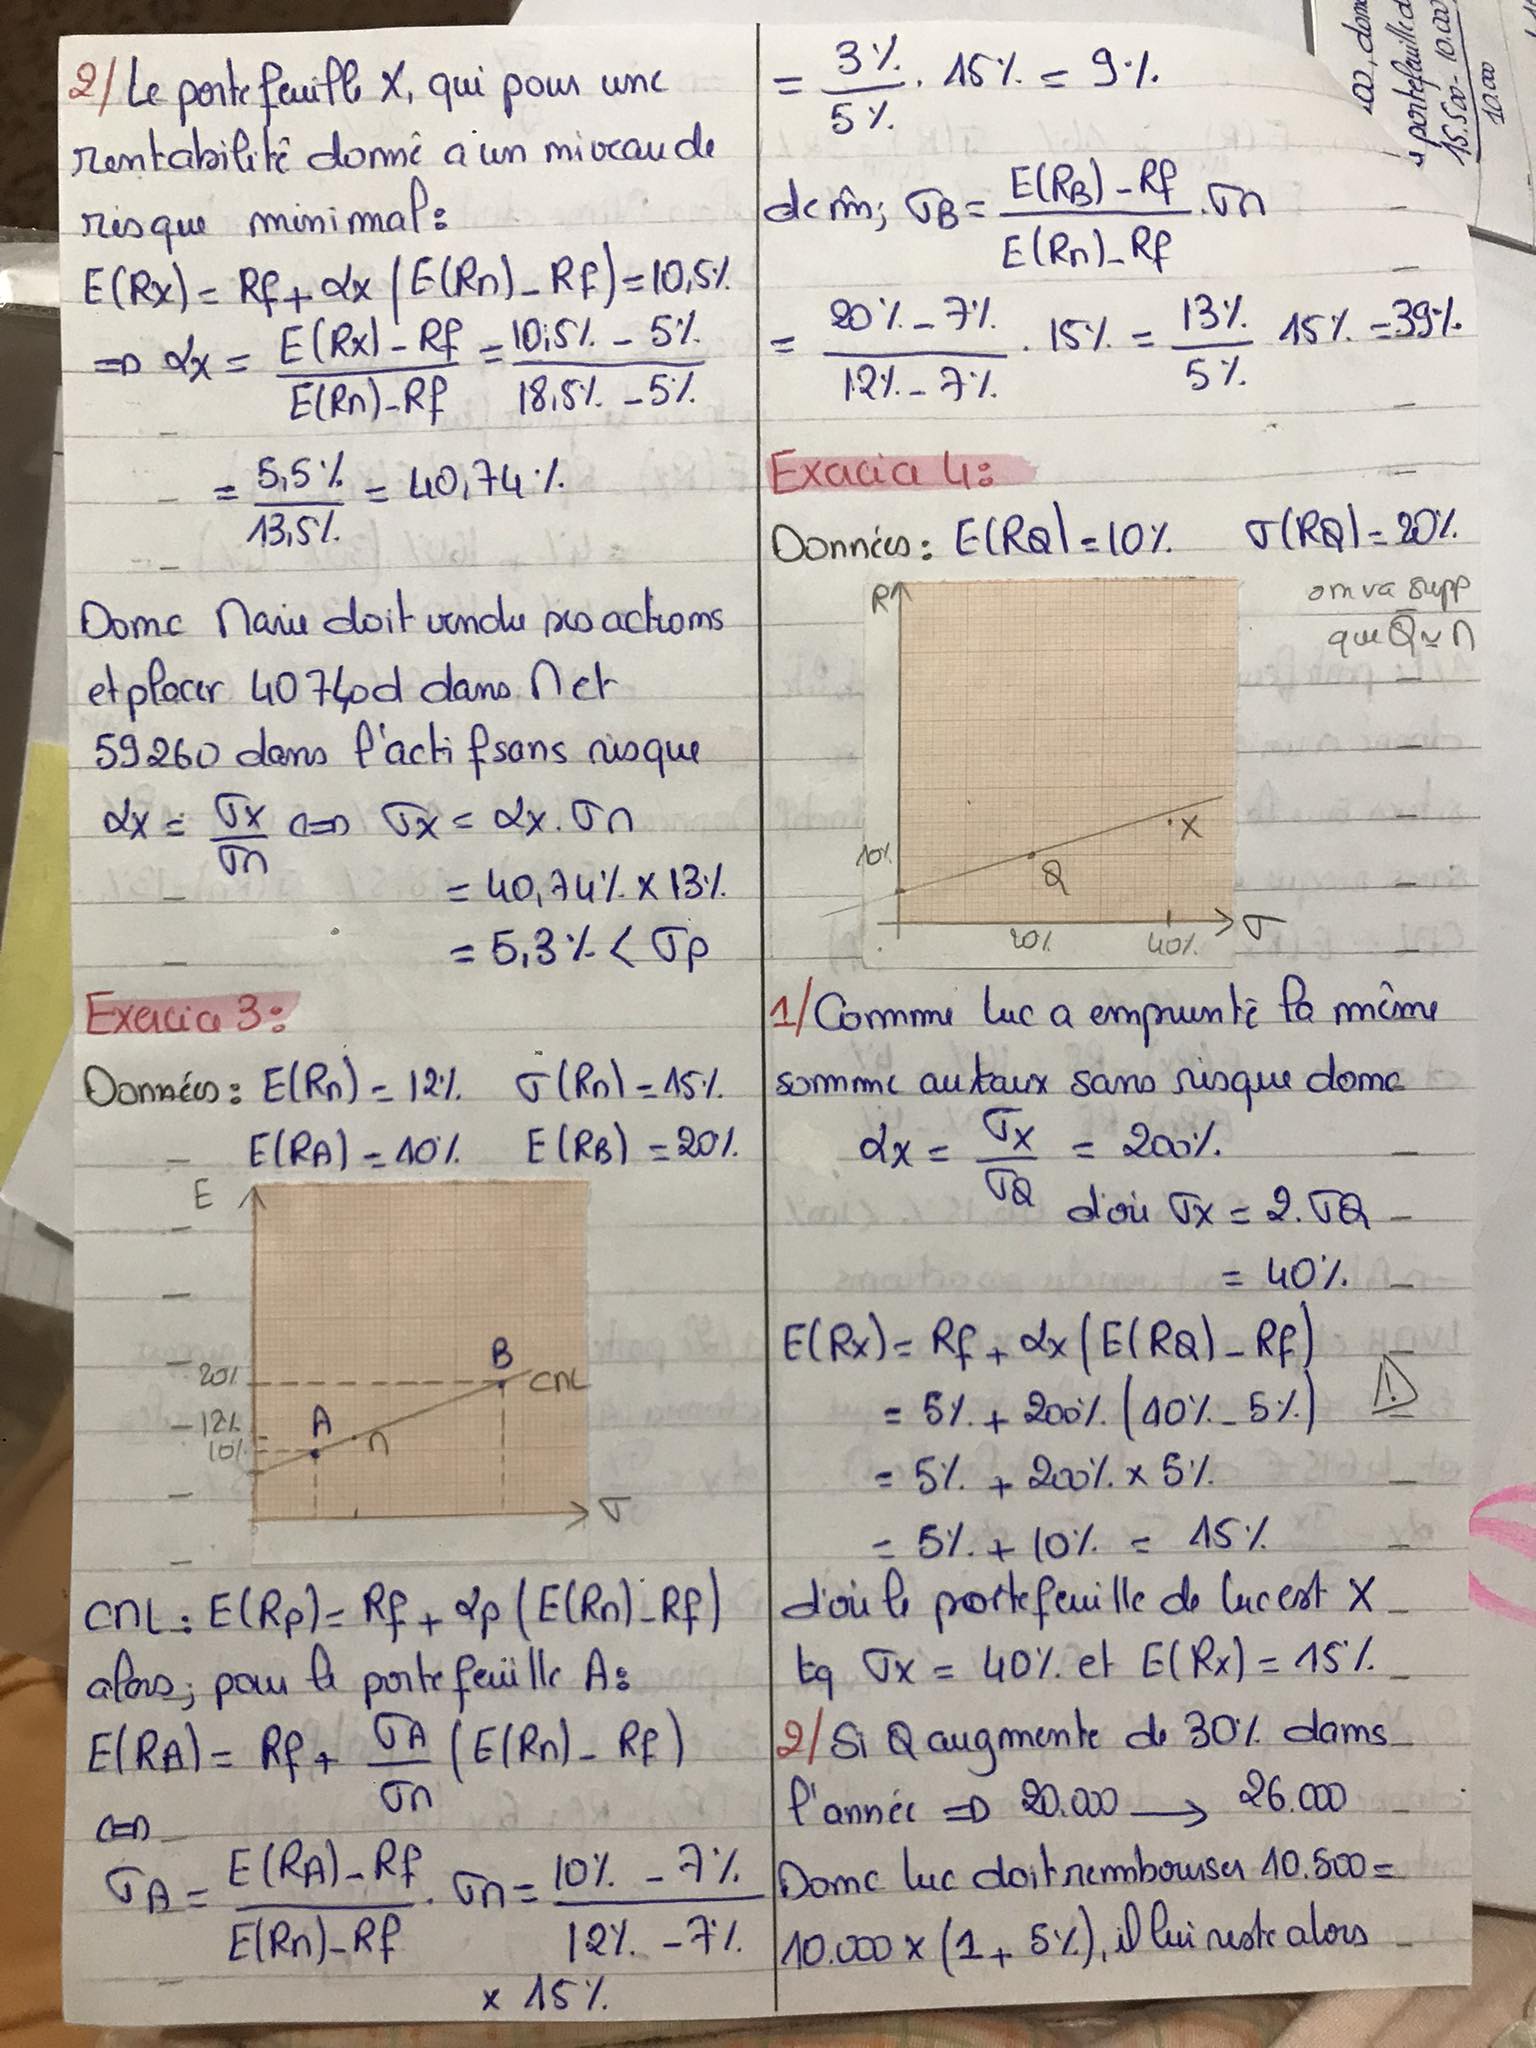 2/ Le portefeuille X, qui pour une
rentabilité donné a un niveau de
risque minimal :
E(Rx) = Rf + αx (E(Rn) - Rf) = 10,5%
=> αx = E(Rx) - Rf / E(Rn) - Rf = 10,5% - 5% / 18,5% - 5%
= 5,5% / 13,5% = 40,74%
Donc Marie doit vendre ses actions
et placer 40 740d dans M et
59260 dans l'actif sans risque
αx = σx / σn <=> σx = αx . σn
= 40,74% x 13%
= 5,3% < σp
Exercice 3:
Données : E(Rn) = 12% σ(Rn) = 15%
E(RA) = 10% E(RB) = 20%
E
B
20%
CML
12%
A
M
10%
σ
CML : E(Rp) = Rf + αp (E(Rn) - Rf)
alors; pour le portefeuille A :
E(RA) = Rf + σA / σn (E(Rn) - Rf)
<=>
σA = E(RA) - Rf / E(Rn) - Rf . σn = 10% - 7% / 12% - 7%
x 15%
= 3% / 5% . 15% = 9%
de m̂; σB = E(RB) - Rf / E(Rn) - Rf . σn
= 20% - 7% / 12% - 7% . 15% = 13% / 5% 15% = 39%
Exercice 4:
Données : E(RQ) = 10% σ(RQ) = 20%
on va supp
que Q ≃ M
R
X
10%
Q
20% 40% σ
1/ Comme Luc a emprunté la même
somme au taux sans risque donc
αx = σx / σQ = 200%
d'où σx = 2.σQ
= 40%
E(Rx) = Rf + αx (E(RQ) - Rf)
= 5% + 200% (10% - 5%)
!
= 5% + 200% x 5%
= 5% + 10% = 15%
d'où le portefeuille de Luc est X
tq σx = 40% et E(Rx) = 15%
2/ Si Q augmente de 30% dans
l'année => 20.000 → 26.000
Donc Luc doit rembourser 10.500 =
10.000 x (1 + 5%), il lui reste alors
portefeuille d
15.500 - 10.000
10000